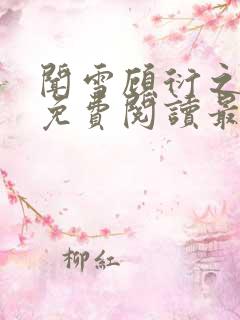 聞雪顧衍之
免費閱讀最
柳紅